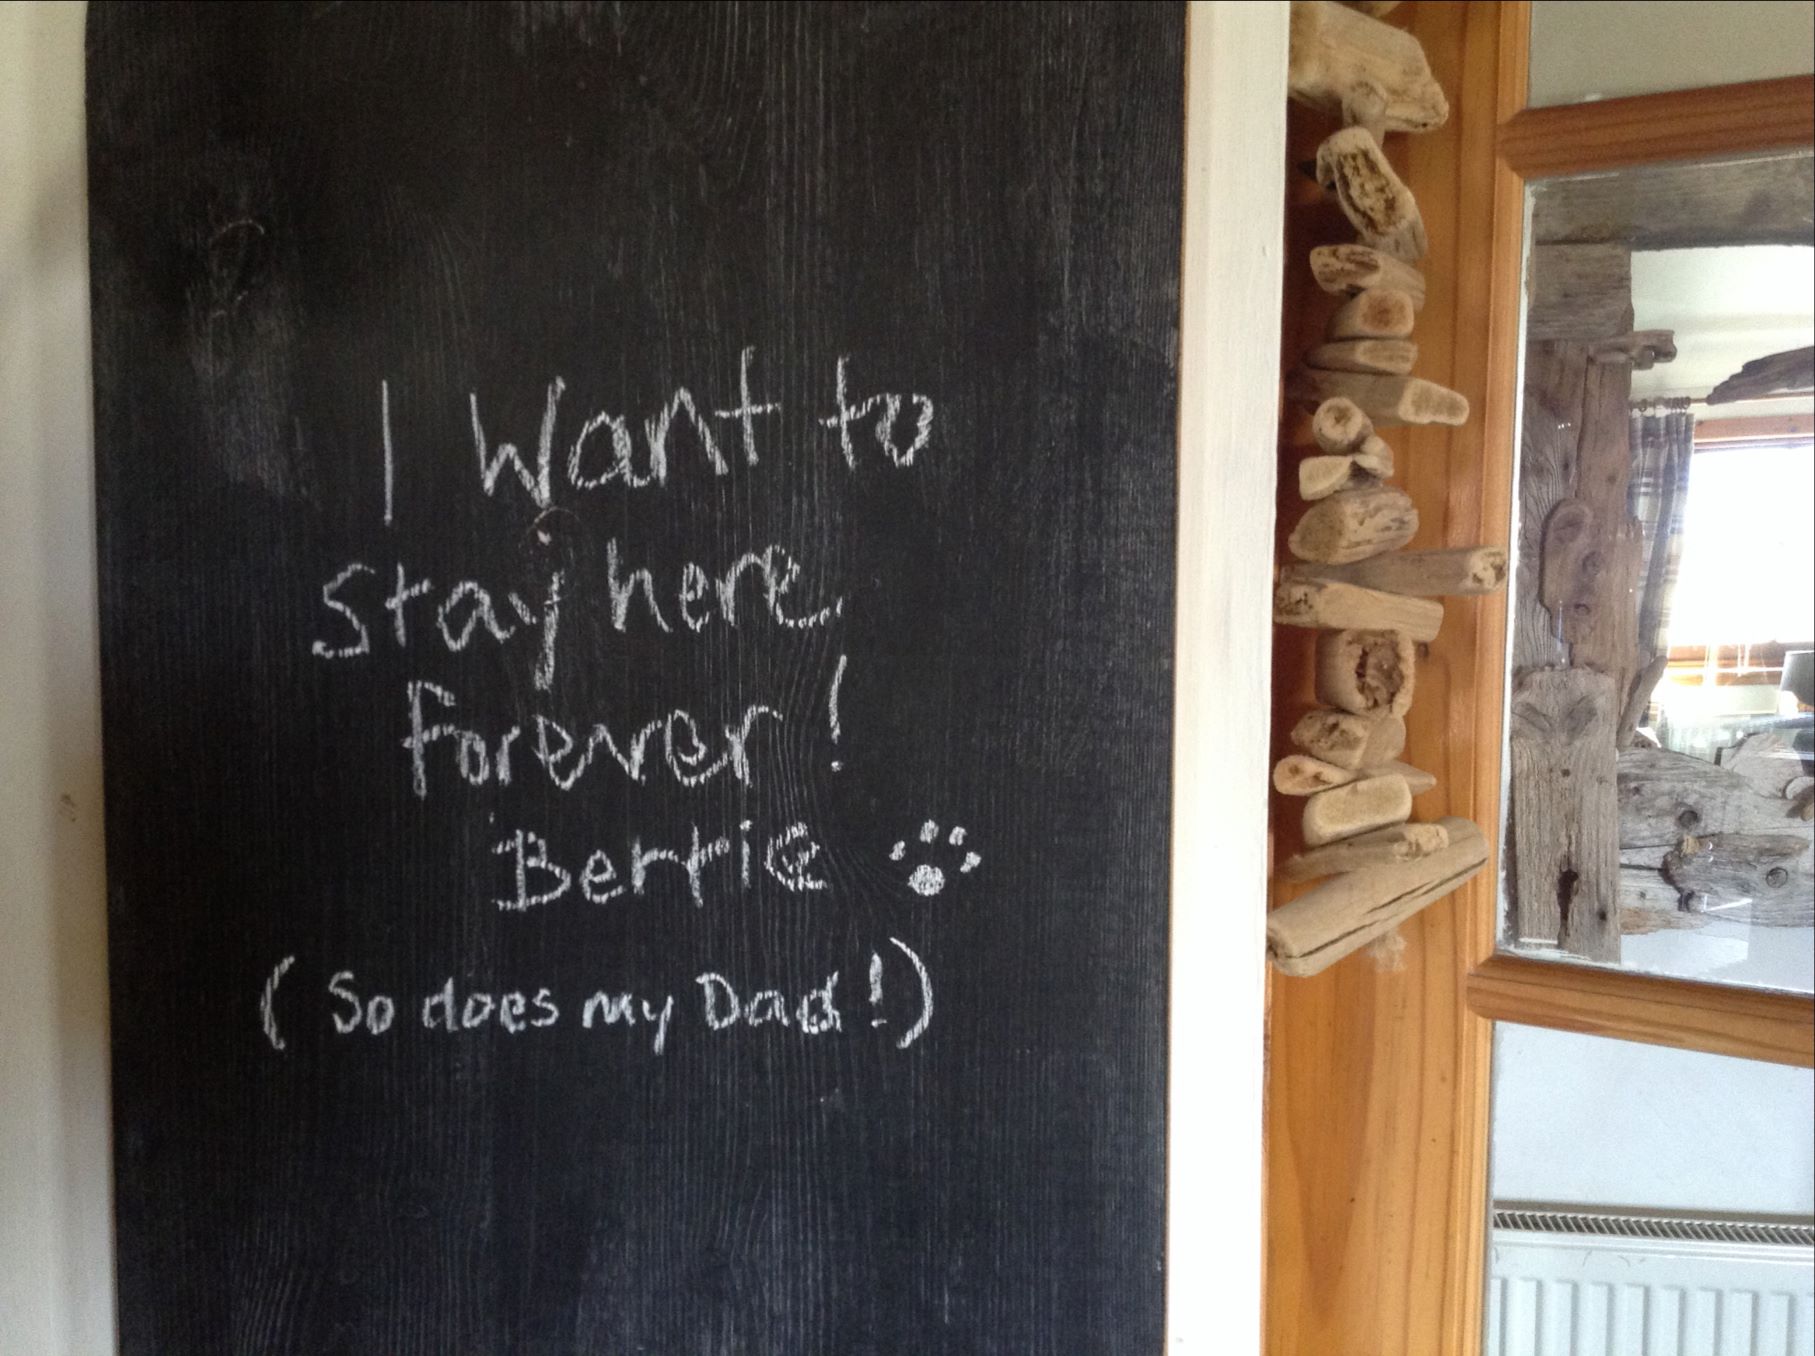 I want to
stay here
forever!
Bertie
(So does my Dad!)